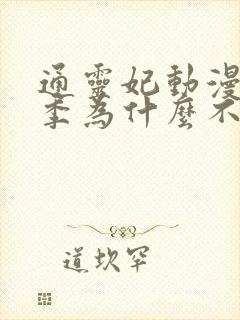 通靈妃動漫
季為什麼不
道坎罕